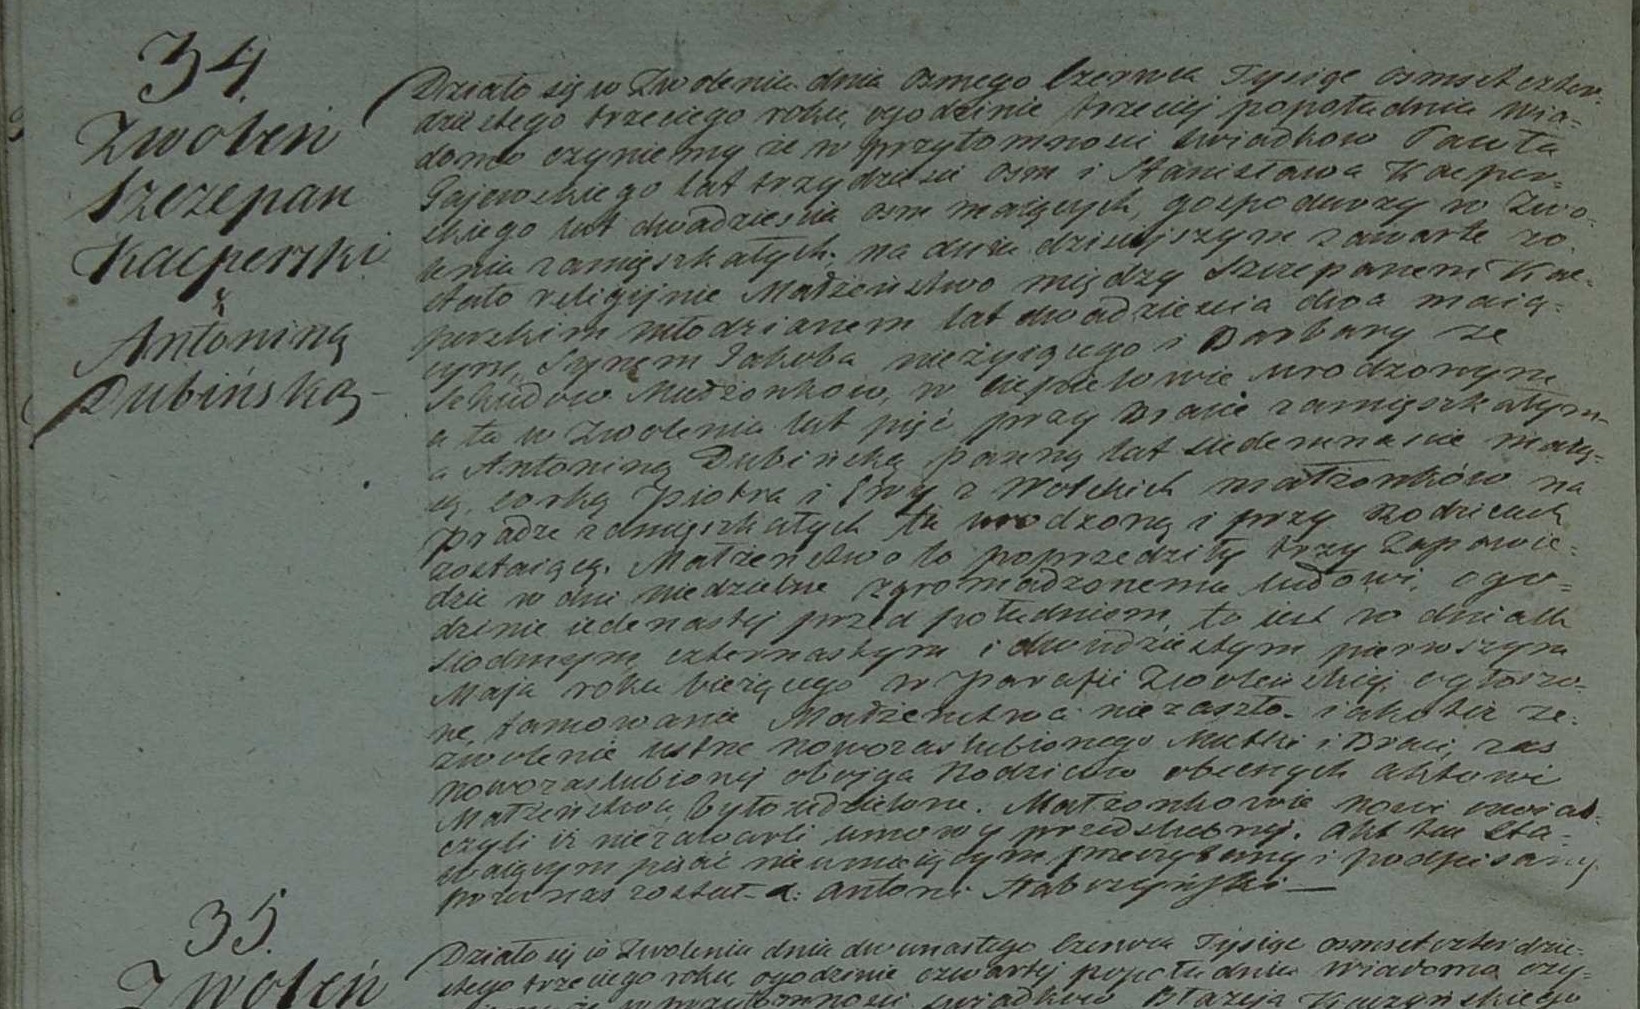 34.
Zwoleń
Szczepan
Kacperski
&
Antoniną
Dubińską
Działo się w Zwoleniu dnia ósmego Czerwca Tysiąc ośmset czter-
dziestego trzeciego roku, ogodzinie trzeciej popołudniu Wia-
domo czyniemy że w przytomności świadków Pawła
Gajewskiego lat trzydzieści ośm i Stanisława Kacper-
skiego lat dwadzieścia ośm maiących, gospodarzy w Zwo-
leniu zamięszkałych, na dniu dzisiejszym zawarte zo-
stało religijnie Małżeństwo między Szczepanem Kac-
perskim młodzianem lat dwadzieścia dwa maią-
cym, Synem Jakuba nieżyiącego i Barbary ze
Małżonków, w Ciepielowie urodzonym
a tu w Zwoleniu lat pięć przy Bracie zamięszkałym-
a Antoniną Dubińską panną lat siedemnaście maią-
cą, córką Piotra i Ewy z Wolskich małżonków na
zamięszkałych tu urodzoną i przy Rodzicach
zostaiącą. Małżeństwo to poprzedziły trzy Zapowie-
dzie w dni niedzielne zgromadzonemu ludowi, ogo-
dzinie iedenastej przed południem, to iest w dniach
siodmym czternastym i dwudziestym pierwszym
Maja roku bieżącego w Parafii Zwoleńskiej ogłoszo-
ne, tamowanie Małżeństwa niezaszło- iakoteż ze-
zwolenie ustne nowozaslubionego Matki i Braci, zas
nowozaslubionej obojga Rodziców obecnych aktowi
Małżeństwa, było udzielone. Małżonkowie nowi oswiad-
czyli iż niezawarli umowy przedslubnej. Akt ten sta-
waiącym pisać nieumieiącym przeczytany i podpisany
przez nas został- X: Antoni
35.
Zwoleń
Działo się w Zwoleniu dnia dwunastego Czerwca Tysiąc ośmset czterdzie-
stego trzeciego roku, ogodzinie czwartej popołudniu Wiadomo czy-
w przytomności świadków Błażeja Kaczyńskiego